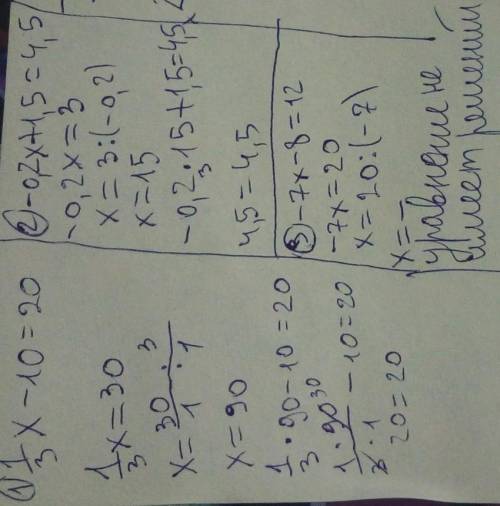 ① 1/3 x - 10 = 20
1/3 x = 30
x = 30/1 · 3/1
x = 90
1/3 · 90 - 10 = 20
1 · 90 30 / 3 · 1 - 10 = 20
20 = 20
② -0,2x + 1,5 = 4,5
-0,2x = 3
x = 3 : (-0,2)
x = 15
-0,2 · 15 + 1,5 = 4,5
3
4,5 = 4,5
③ -7x - 8 = 12
-7x = 20
x = 20 : (-7)
x = —
уравнение не
имеет решений